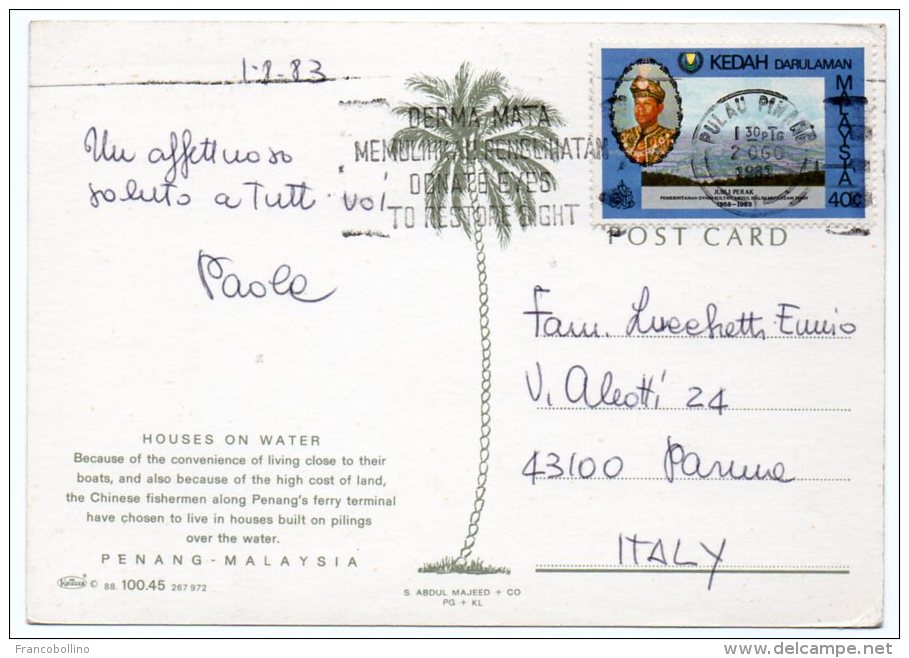 1-8-83
Un affettuoso
saluto a tutti voi
Paola
DERMA MATA
MEMULIHKAN PENGLIHATAN
DONATE EYES
TO RESTORE SIGHT
KEDAH DARULAMAN
MALAYSIA
40¢
JUBLI PERAK
1958-1983
PULAU PINANG
1 30PTG
2 OGO
1983
POST CARD
Fam. Lucchetti Ennio
V. Aleotti 24
43100 Parma
ITALY
HOUSES ON WATER
Because of the convenience of living close to their
boats, and also because of the high cost of land,
the Chinese fishermen along Penang's ferry terminal
have chosen to live in houses built on pilings
over the water.
PENANG - MALAYSIA
Krüger © 88. 100.45 267 972
S. ABDUL MAJEED + CO
PG + KL
Francobollino
delcampe.net